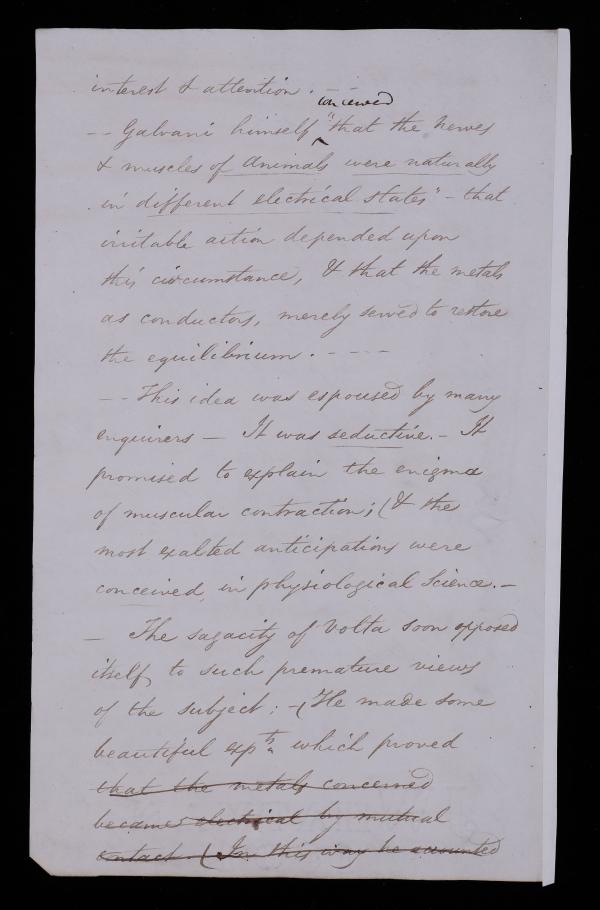 interest & attention. - -
conceived
-- Galvani himself "that the nerves
& muscles of animals were naturally
in different electrical states" - that
irritable action depended upon
this circumstance, & that the metals
as conductors, merely served to restore
the equilibrium. - - - -
-- This idea was espoused by many
enquirers — It was seductive. - It
promised to explain the enigma
of muscular contraction; (& the
most exalted anticipations were
conceived, in physiological Science. -
- The sagacity of Volta soon opposed
itself, to such premature views
of the subject: - (He made some
beautiful expts. which proved
that the metals concerned
became electrical by mutual
contact. (In this way he accounted